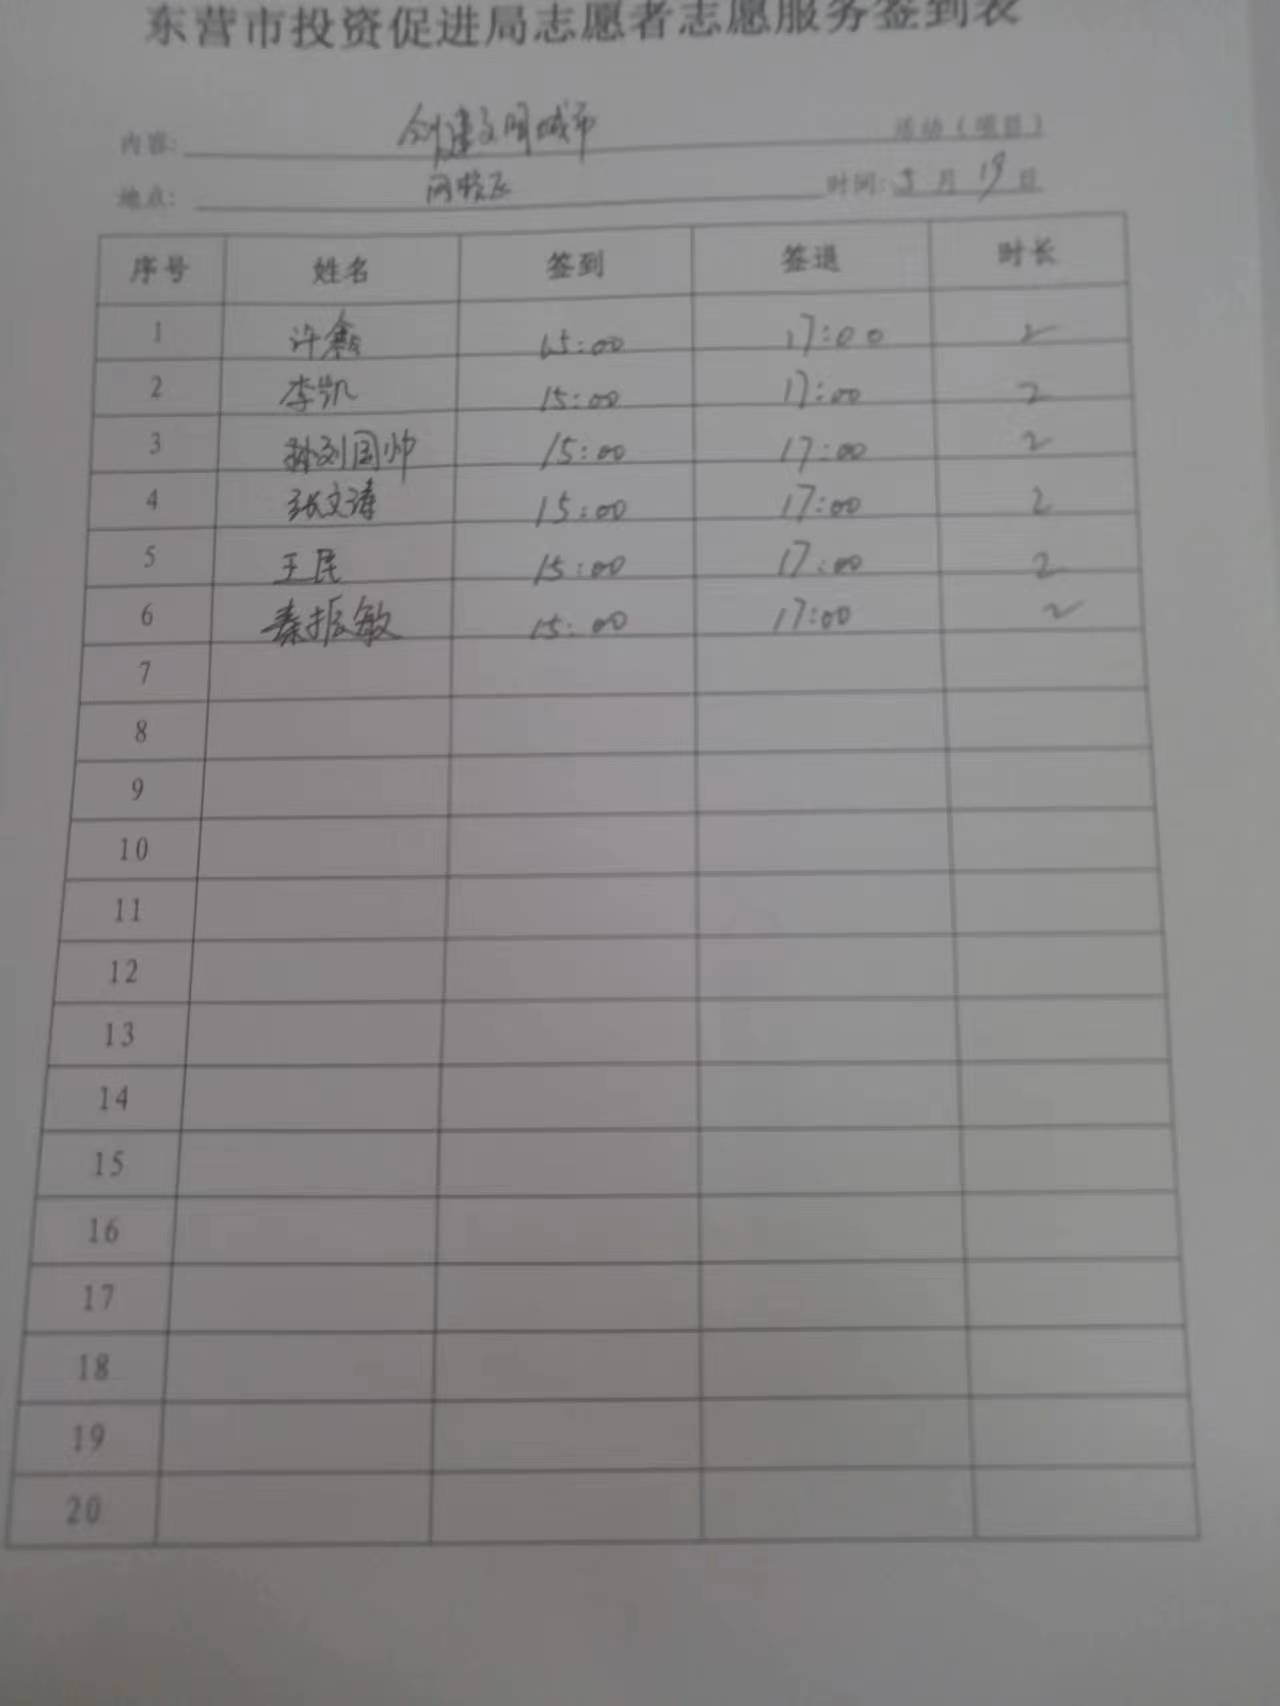 东营市投资促进局志愿者志愿服务签到表
内容: 创建文明城市 活动（项目）
地点: 网格区 时间: 5月19日
序号 姓名 签到 签退 时长
1 许鑫 15:00 17:00 2
2 李凯 15:00 17:00 2
3 孙刘国帅 15:00 17:00 2
4 张文涛 15:00 17:00 2
5 王民 15:00 17:00 2
6 秦振敏 15:00 17:00 2
7
8
9
10
11
12
13
14
15
16
17
18
19
20